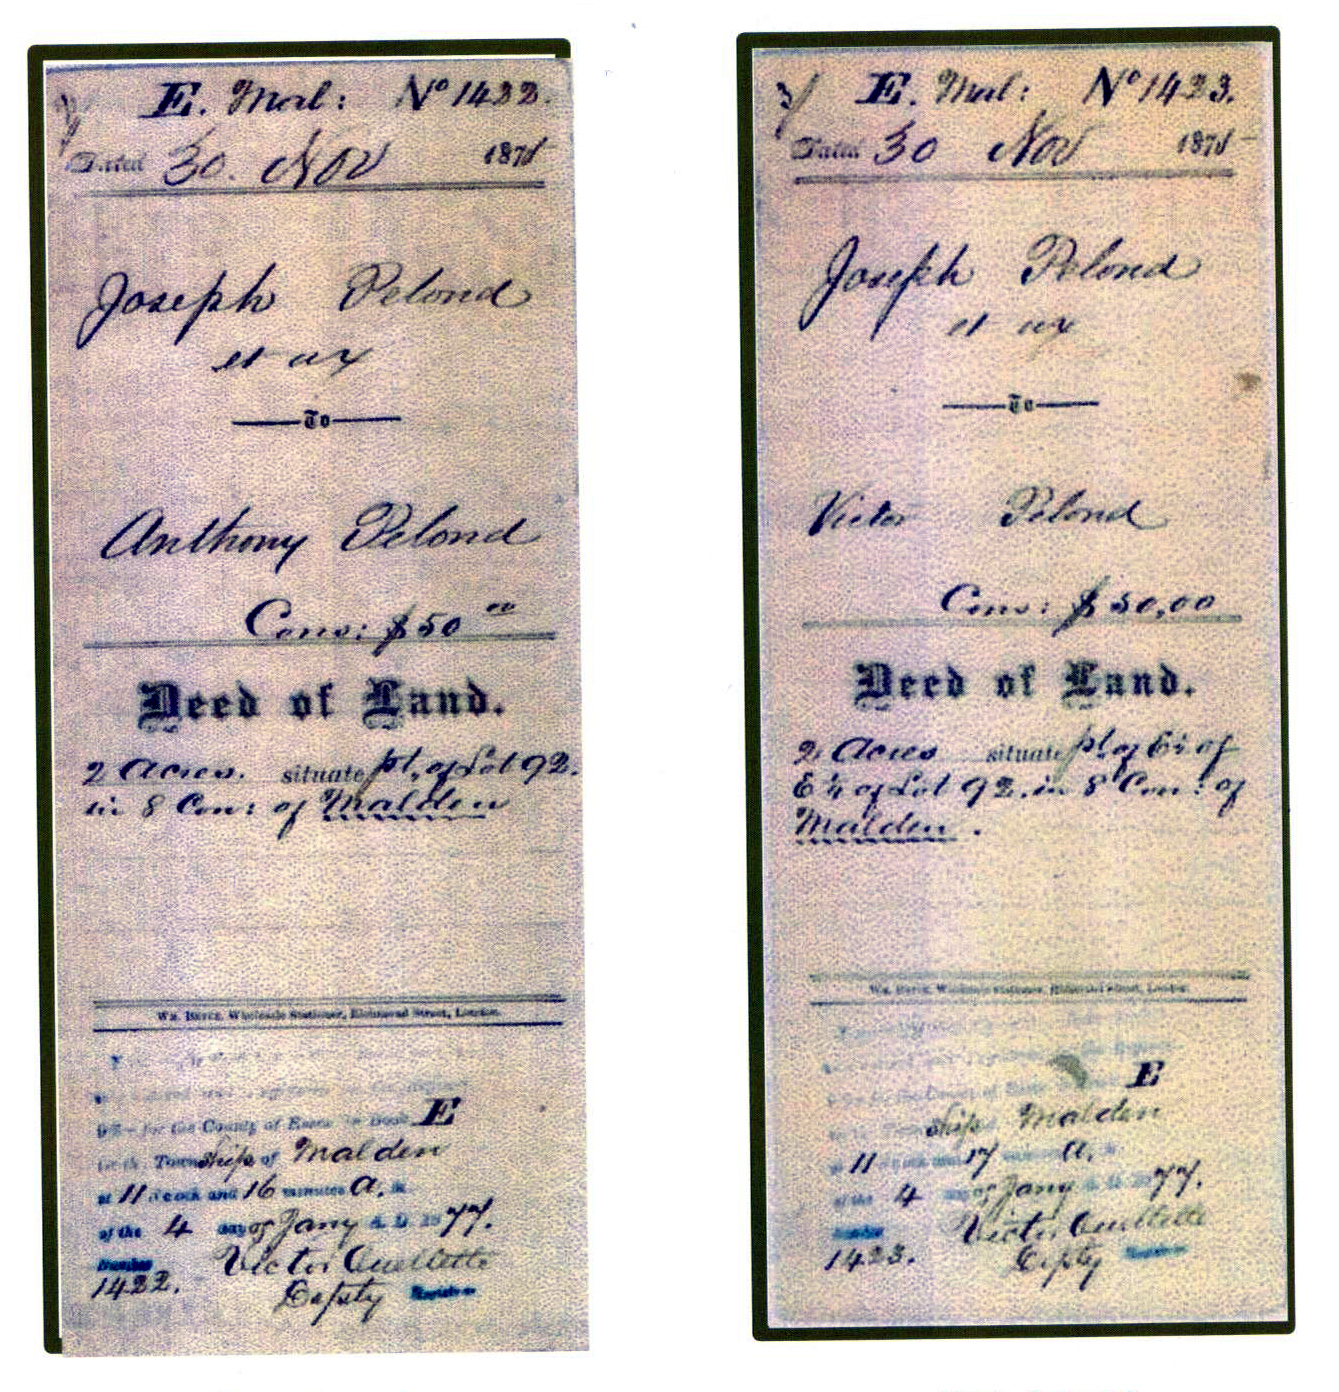 E. Mal: No 1422.
Dated 30. Nov 1875
Joseph Pelond
et ux
To
Anthony Pelond
Cons: $50 00
Deed of Land.
2 Acres. situate pt. of Lot 92.
in 8 Con: of Malden
Wm. Bryce, Wholesale Stationer, Richmond Street, London.
for the County of Essex in Book E
Townships of Malden
at 11 o'clock and 16 minutes A. M.
of the 4 day of Jany A. D. 1877.
Number Victor Ouellette
1422. Deputy Registrar
E. Mal: No 1423.
Dated 30 Nov 1875
Joseph Pelond
et ux
To
Victor Pelond
Cons: $50,00
Deed of Land.
2 Acres situate pt of E½ of
E¼ of Lot 92. in 8 Con: of
Malden.
Wm. Bryce, Wholesale Stationer, Richmond Street, London.
for the County of Essex E
ships Malden
at 11 o'clock and 17 minutes A. M.
of the 4 day of Jany A. D. 1877.
Number Victor Ouellette
1423. Depty Registrar